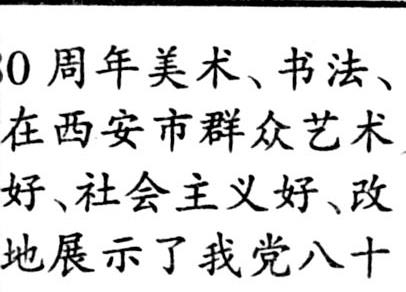 80周年美术、书法、
在西安市群众艺术
好、社会主义好、改
地展示了我党八十